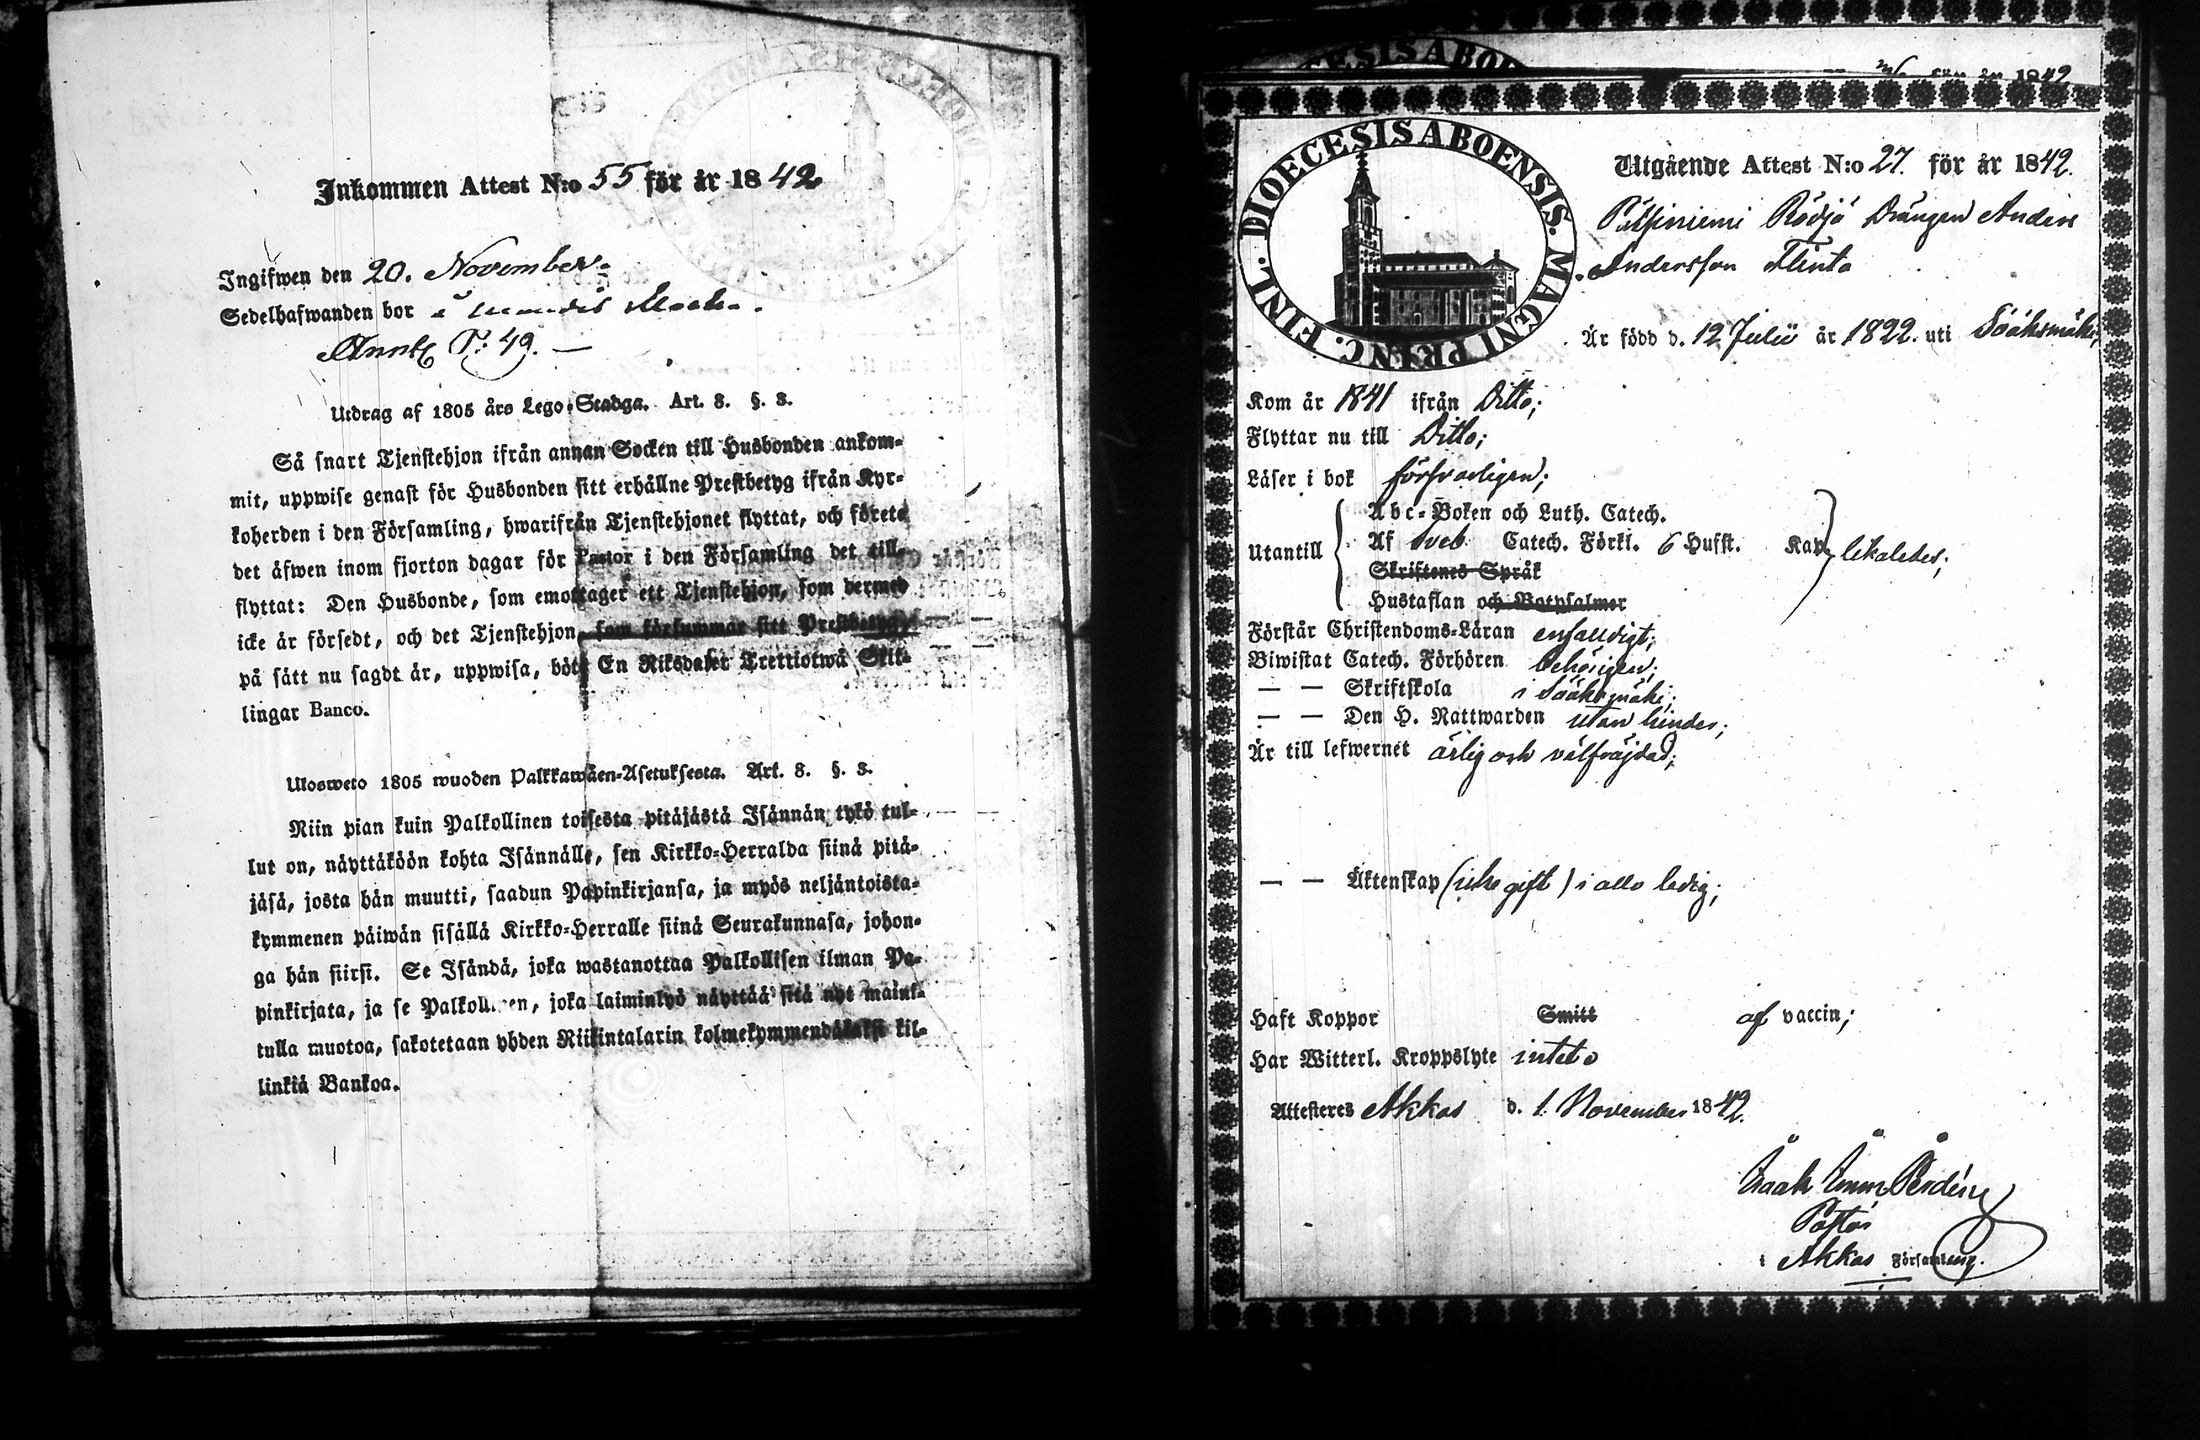 Inkommen Attest N:o 55 för år 1842
Ingifwen den 20. November.
Sedelhafwanden bor
P: 49.
Utdrag af 1805 års Lego-Stadga. Art. 8. §. 3.
Så snart Tjenstehjon ifrån annan Socken till Husbonden ankom-
mit, uppwise genast för Husbonden sitt erhållne Prestbetyg ifrån Kyr-
koherden i den Församling, hwarifrån Tjenstehjonet flyttat, och förete
det äfwen inom fjorton dagar för Pastor i den Församling det till-
flyttat: Den Husbonde, som emottager ett Tjenstehjon, som dermed
icke är försedt, och det Tjenstehjon, som försummar sitt Prestbetyg,
på sätt nu sagdt är, uppwisa, böte En Riksdaler Trettiotwå Skil-
lingar Banco.
Ulosweto 1805 wuoden Palkkawäen-Asetuksesta. Art. 8. §. 3.
Niin pian kuin Palkollinen toisesta pitäjästä Isännän tykö tul-
lut on, näyttäköön kohta Isännälle, sen Kirkko-Herralda siinä pitä-
jäsä, josta hän muutti, saadun Papinkirjansa, ja myös neljäntoista-
kymmenen päiwän sisällä Kirkko-Herralle siinä Seurakunnasa, johon-
ga hän siirsi. Se Isändä, joka wastanottaa Palkollisen ilman Pa-
pinkirjata, ja se Palkollinen, joka laiminlyö näyttää sitä nyt mainit-
tulla muotoa, sakotetaan yhden Riikintalarin kolmekymmendäkaksi kil-
linkiä Bankoa.
DIOECESIS ABO
för år 1842
DIOECESIS ABOENSIS. MAGNI PRINC. FINL.
Utgående Attest N:o 27. för år 1842.
Rödjö Drängen Anders
Andersson Flinta
Är född d. 12 Julii år 1822. uti Sääksmäki,
Kom år 1841 ifrån Ditto;
Flyttar nu till Ditto;
Läser i bok försvarligen;
Abc-Boken och Luth. Catech.
Utantill Af Sveb. Catech. Förkl. 6 Hufst. Kap. likaledes;
Skriftenes Språk
Hustaflan och Botpsalmer
Förstår Christendoms-Läran enfalldigt;
Biwistat Catech. Förhören behörigen;
— — Skriftskola i Sääksmäki;
— — Den H. Nattwarden utan hinder;
Är till lefwernet ärlig och välfräjdad;
— — Äktenskap (icke gift) i allo ledig;
Haft Koppor Smitt af vaccin;
Har Witterl. Kroppslyte intet
Attesteres Akkas d. 1. November 1842.
Isaak Emm.
Pastor
i Akkas Församling.